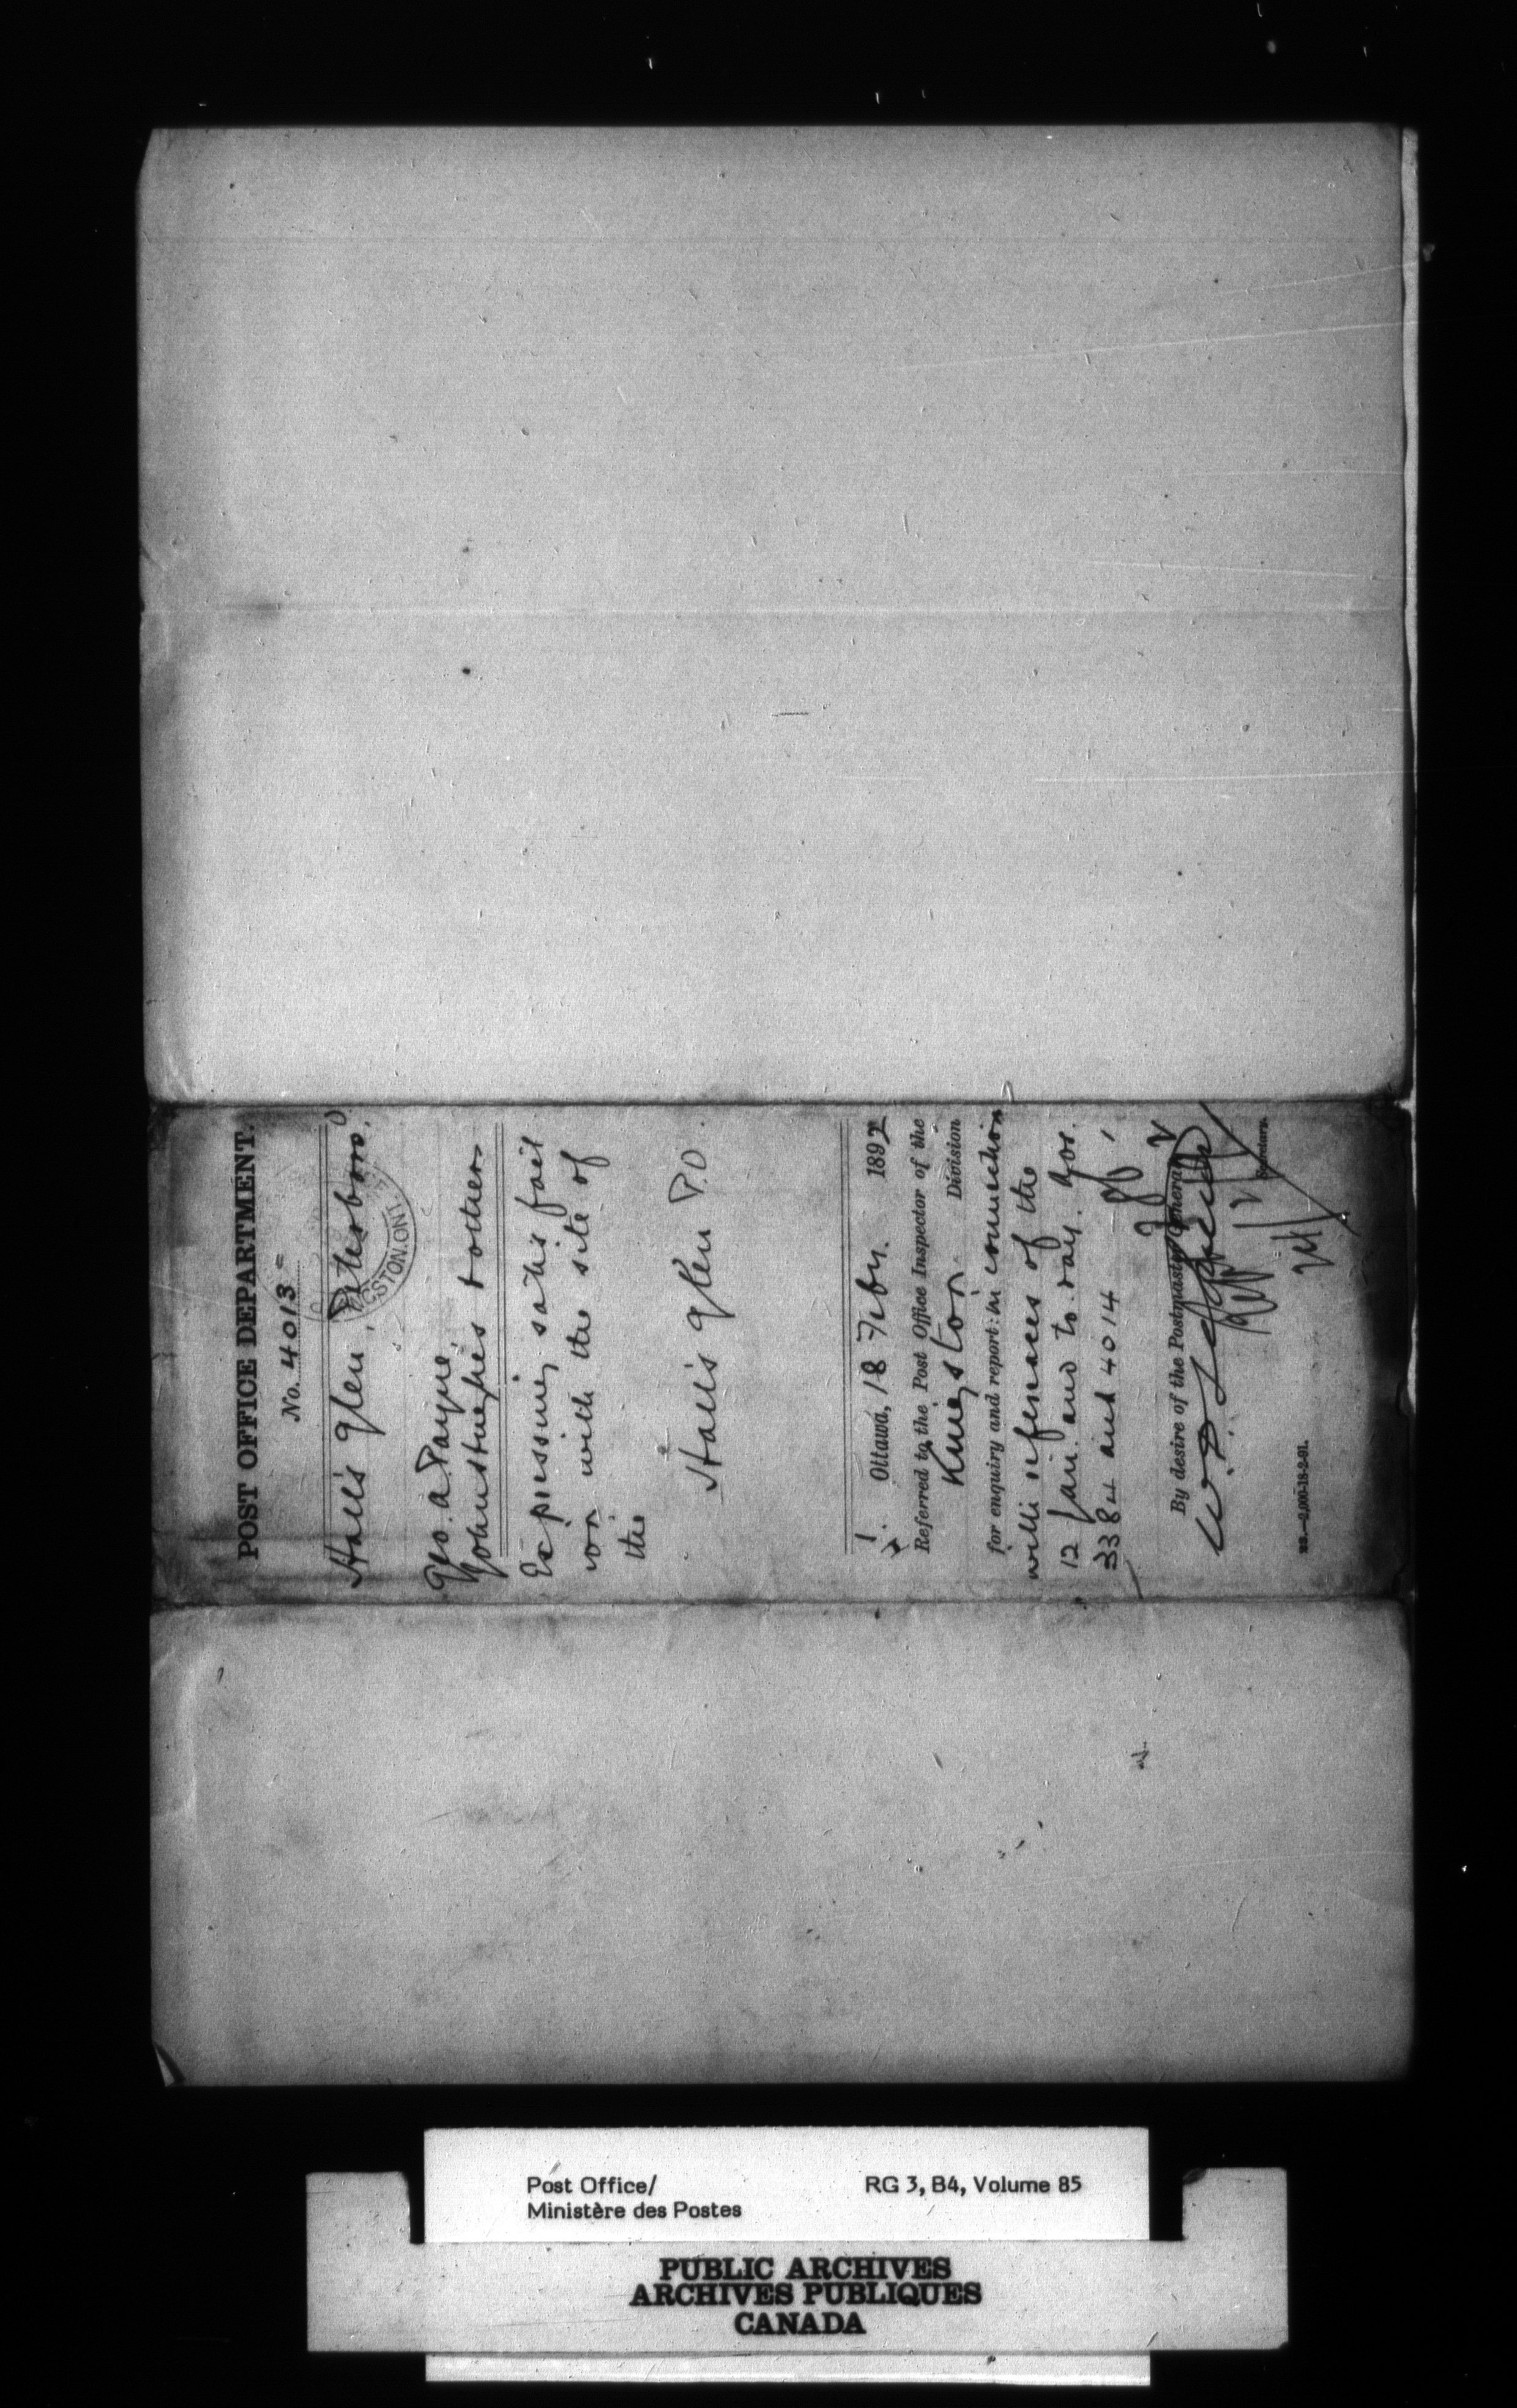 POST OFFICE DEPARTMENT.
No. 4013
Hall's Glen, Peterboro'.
KINGSTON. ONT.
Geo. A. Payne,
Young's Point & others
Expressing satisfact
ion with the site of
the
Hall's Glen P.O.
Ottawa, 18 Feby. 1892
Referred to the Post Office Inspector of the
Kingston Division
for enquiry and report: in connection
with references of the
12 Jan. and to-day. Nos.
3384 and 4014
By desire of the Postmaster General
Secretary.
Post Office/
Ministère des Postes
RG 3, B4, Volume 85
PUBLIC ARCHIVES
ARCHIVES PUBLIQUES
CANADA